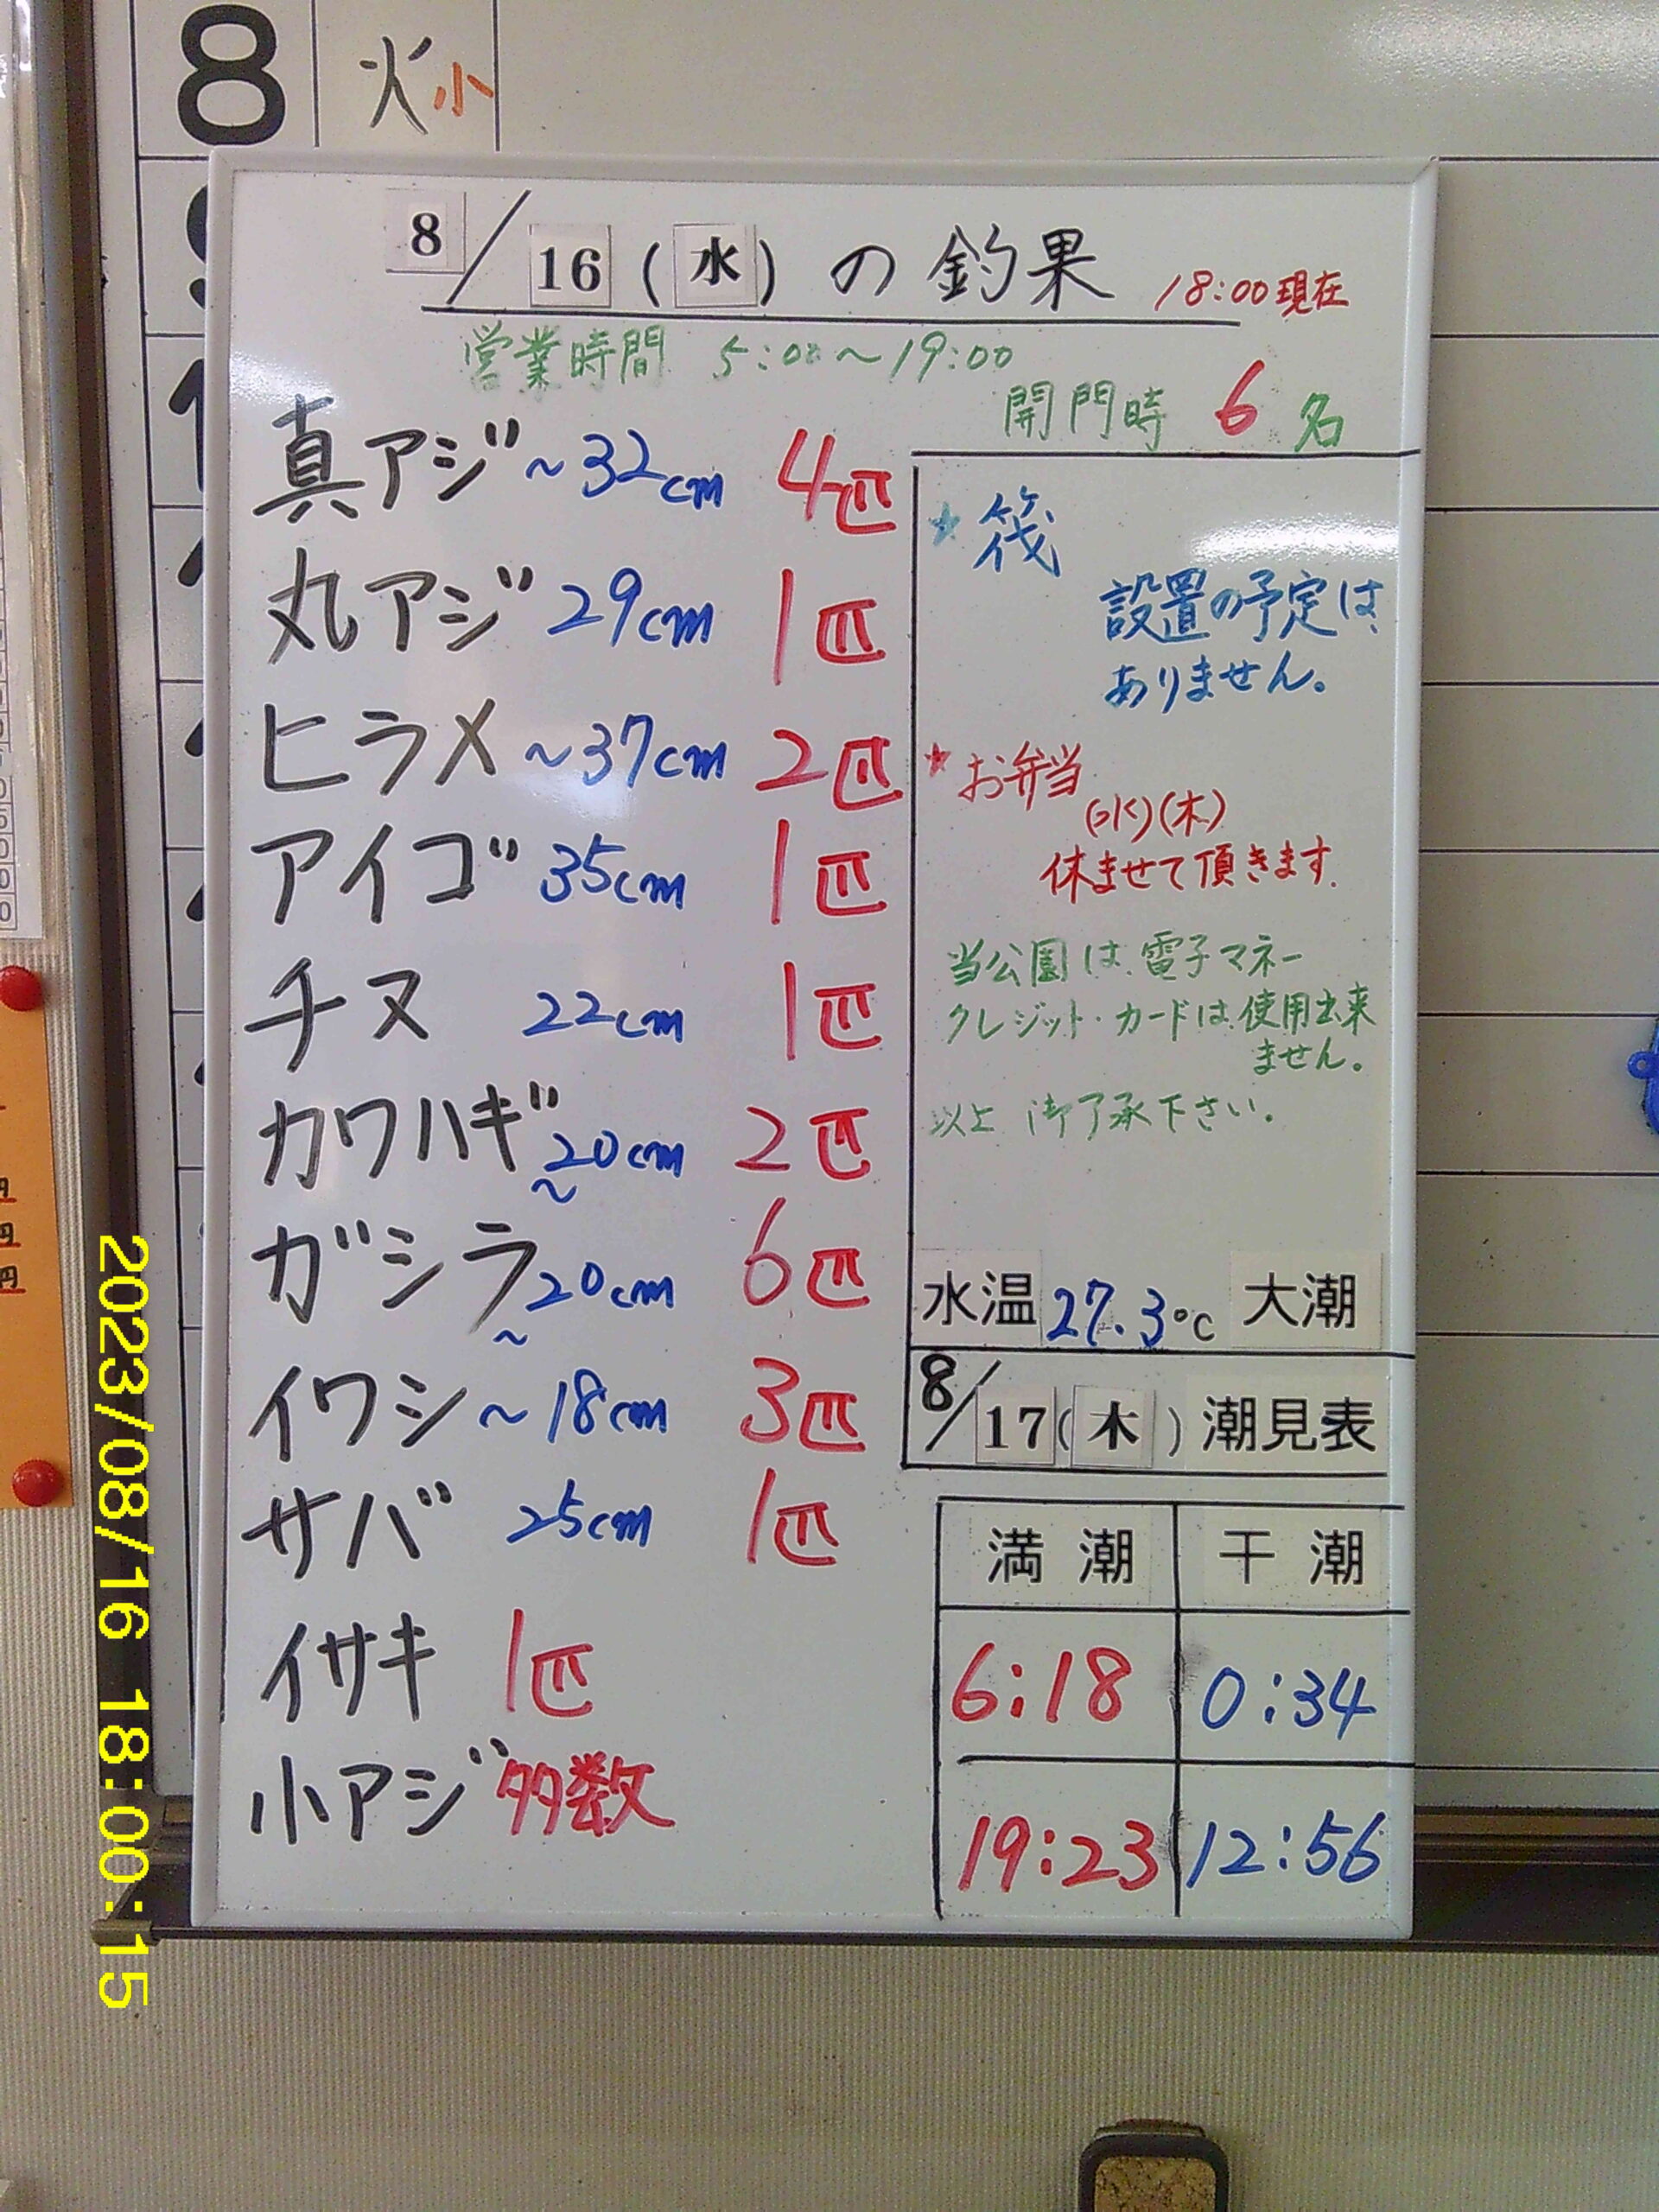 8 火 小
8/16(水)の釣果 18:00現在
営業時間 5:00～19:00
開門時 6名
真アジ ～32cm 4匹
丸アジ 29cm 1匹
ヒラメ ～37cm 2匹
アイゴ 35cm 1匹
チヌ 22cm 1匹
カワハギ ～20cm 2匹
ガシラ ～20cm 6匹
イワシ ～18cm 3匹
サバ 25cm 1匹
イサキ 1匹
小アジ 多数
★筏
設置の予定は
ありません。
★お弁当
(水)(木)
休ませて頂きます.
当公園は電子マネー
クレジット・カードは使用出来
ません。
以上 御了承下さい。
水温 27.3℃ 大潮
8/17(木) 潮見表
満潮 干潮
6:18 0:34
19:23 12:56
円
円
円
2023/08/16 18:00:15